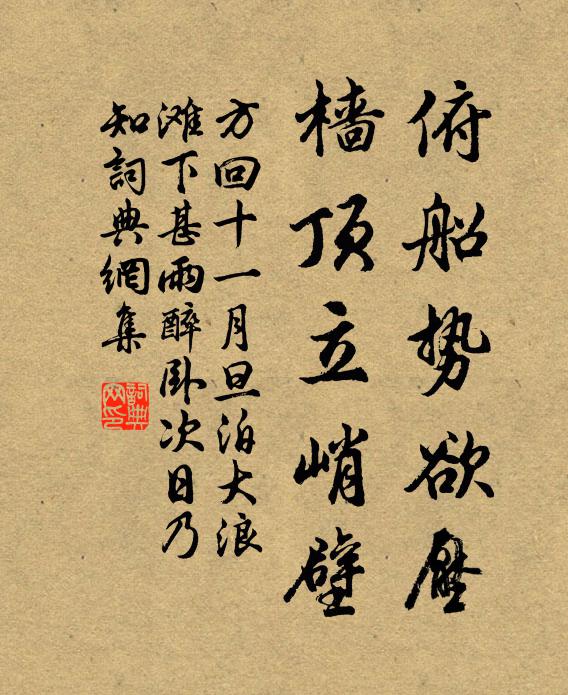 俯船势欲壓
檣顶立峭壁
方回十一月旦泊大浪
滩下甚雨醉卧次日乃
知詞典網集
詞典
网印